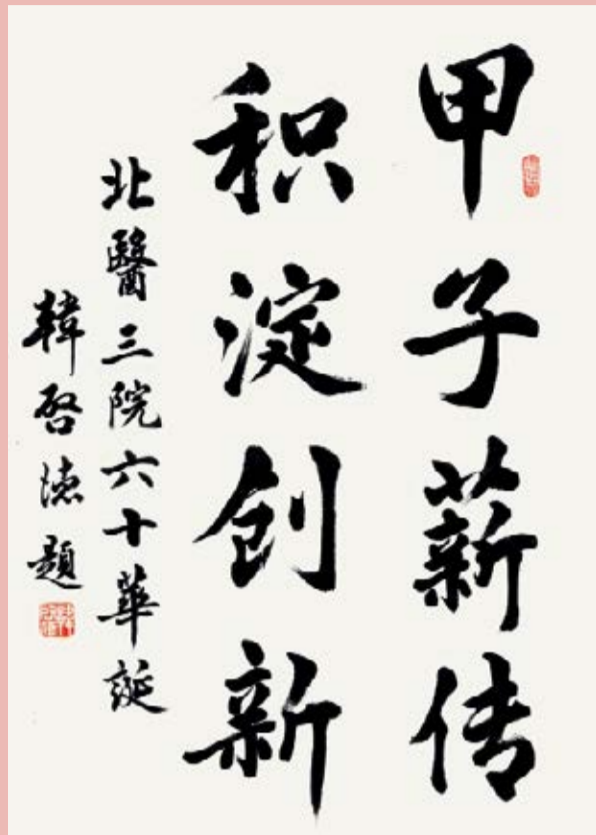 甲子薪传
积淀创新
北醫三院六十華誕
韓启德題